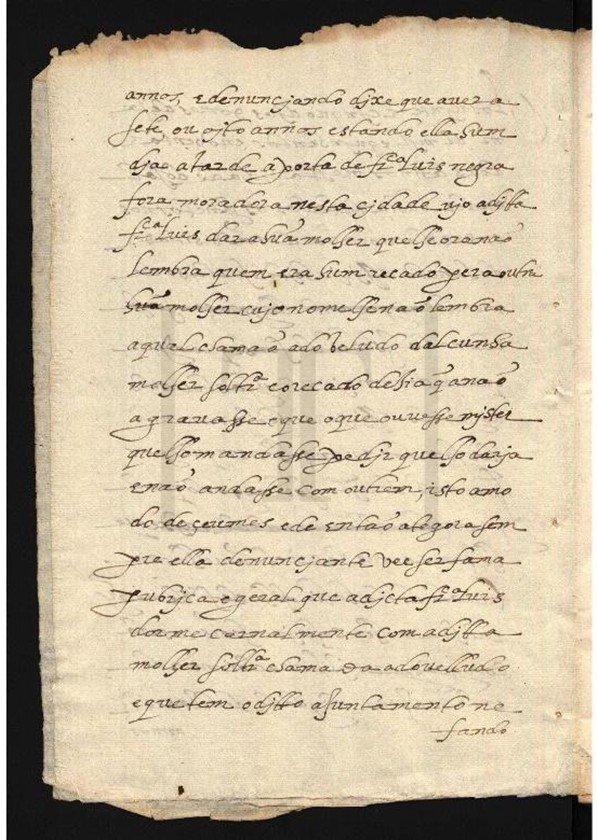 annos, e denuncjando djxe que aver a
sete ou ojto annos estando ella hum
dja a tarde a porta de fr.ca luis negra
fora moradora nesta cjdade vjo a djtta
fr.ca luis dar a hũa molher que lhe ora não
lembra quem era hum recado pera outra
hũa molher cujo nome lhe não lembra
a qual chamão a do veludo dalcunha
molher solt.ra e o recado dezia q̃ a não
agravasse e que o que ouvesse mjster
que lho mandasse pedjr que lho darja
e não andasse com outrem, isto a mo
do de çeumes e de então ategora sem
pre ella denuncjante vee ser fama
pubrjca e geral que a djcta fr.ca luis
dorme carnalmente com a djtta
molher solt.ra chamada a do vellludo
e que tem o djtto ajuntamento ne
fando